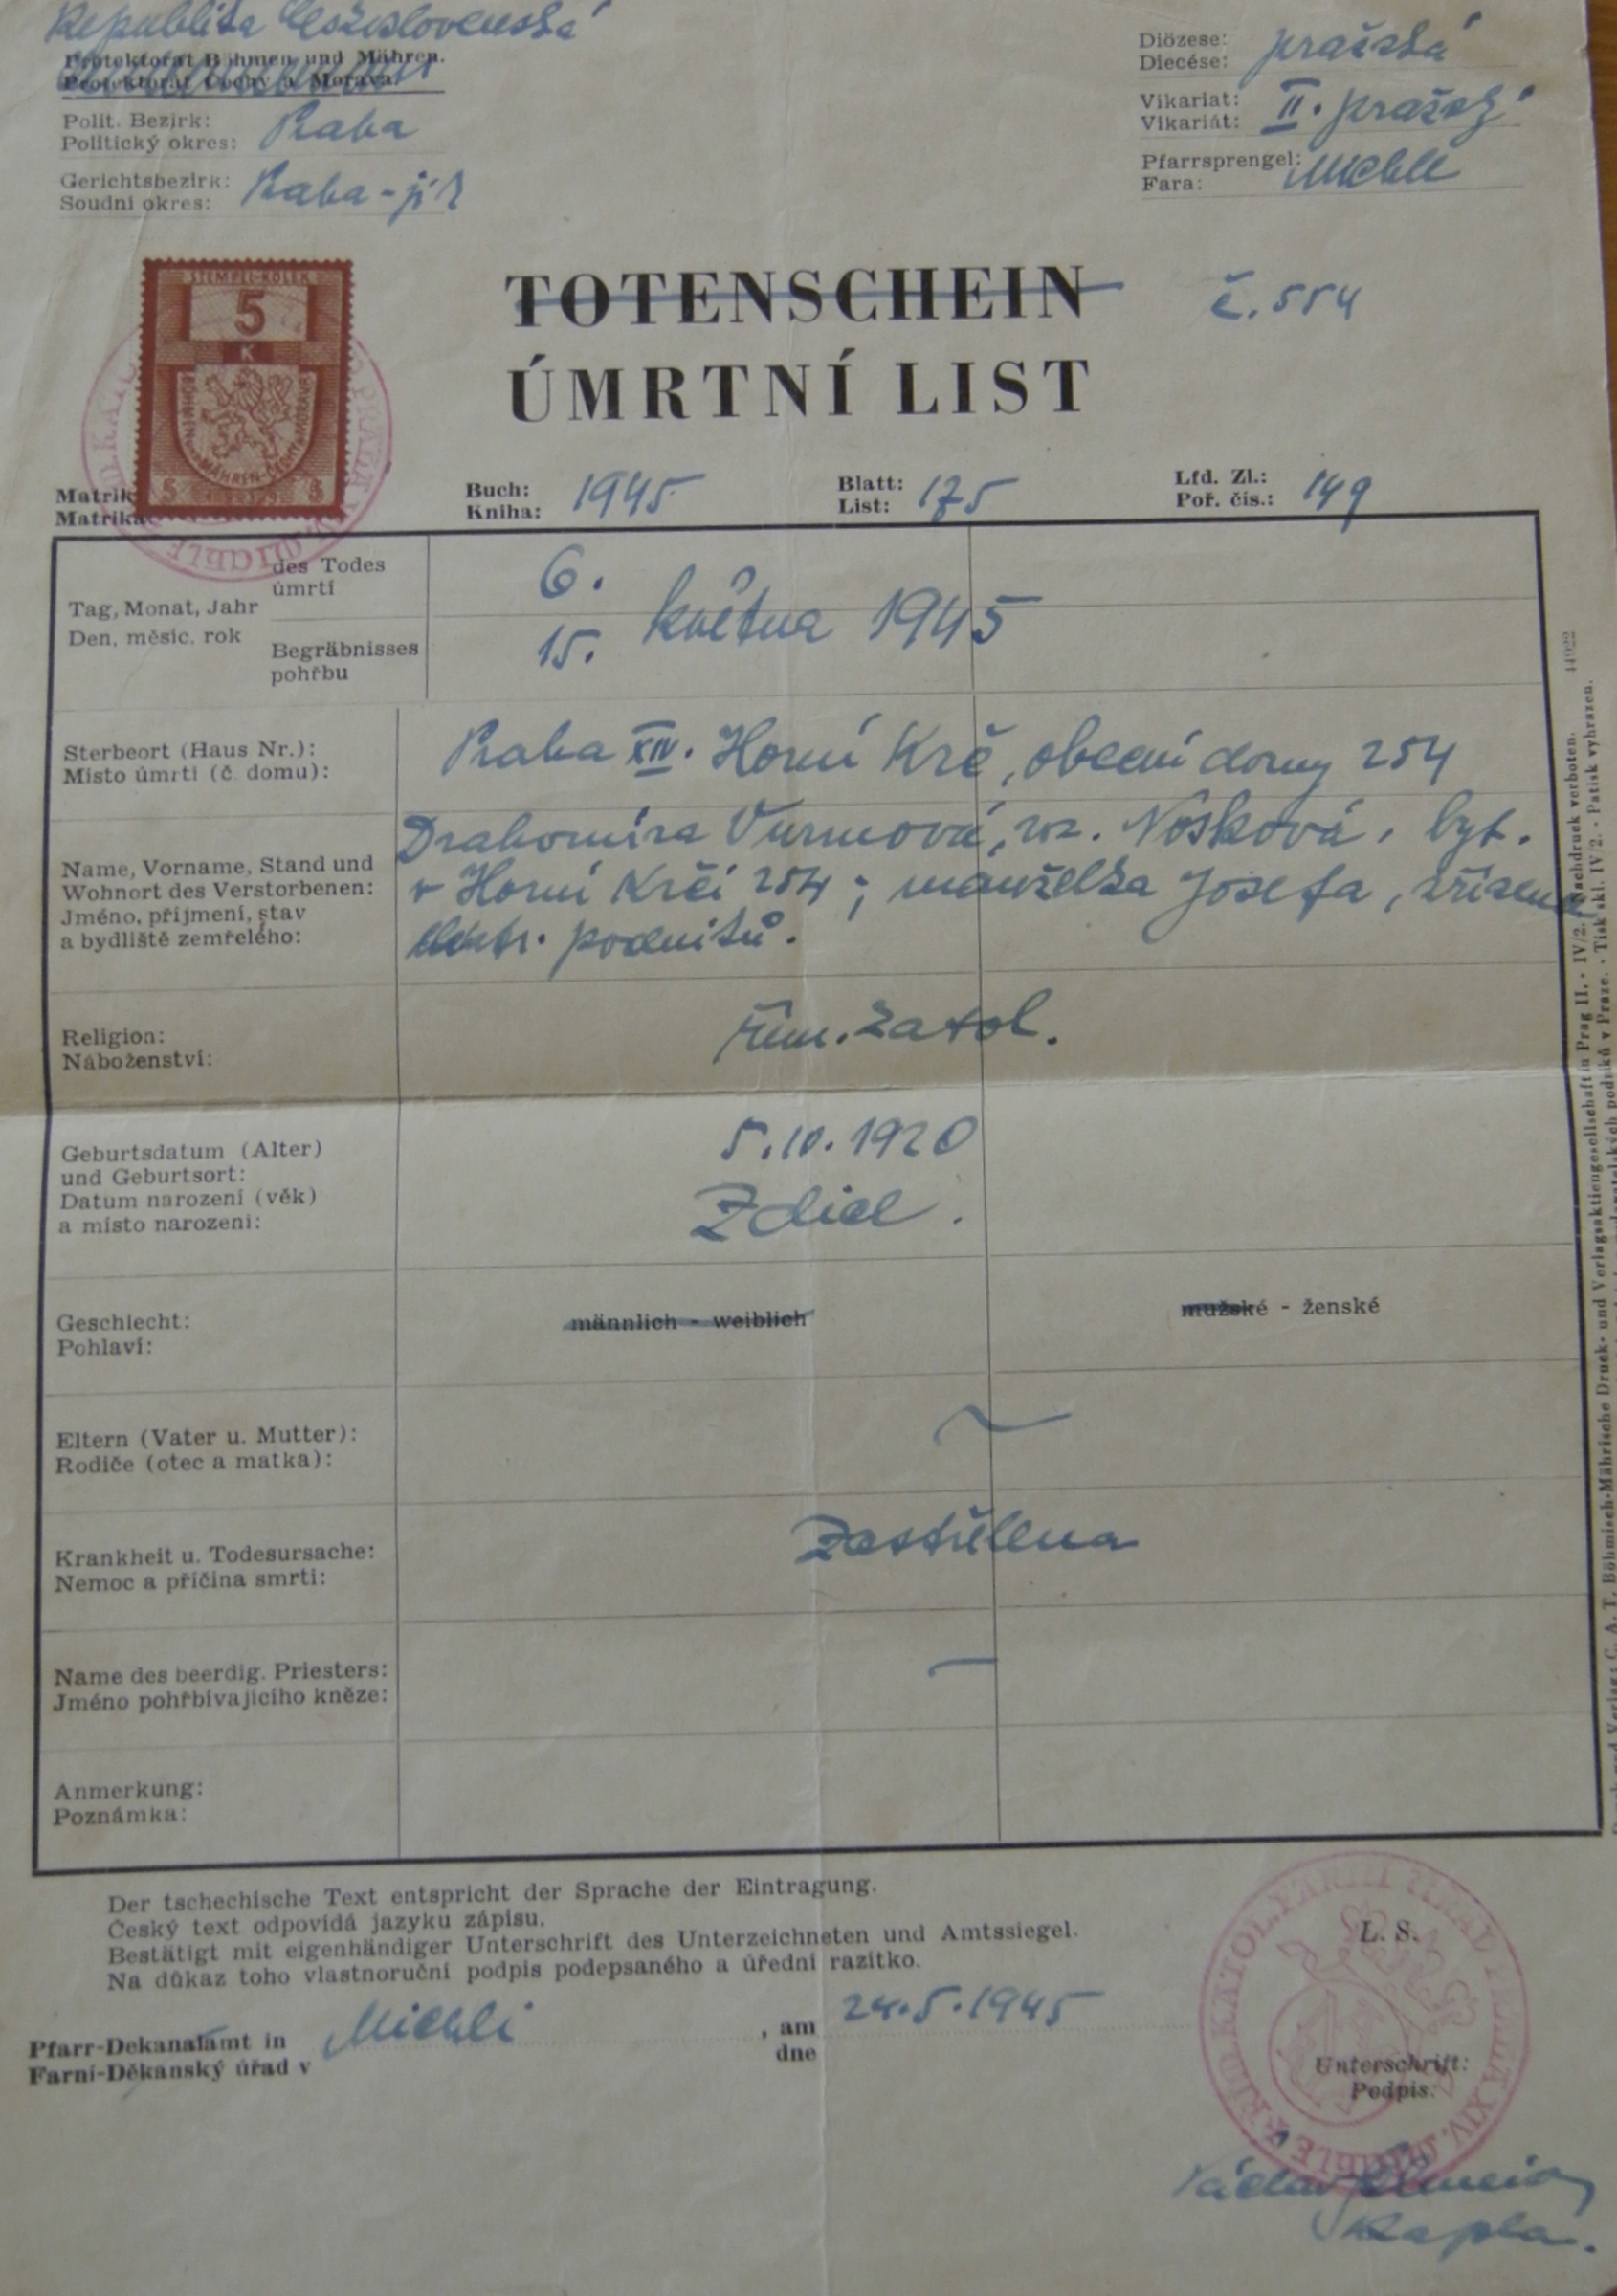 Republika Československá
Protektorat Böhmen und Mähren.
Protektorát Čechy a Morava.
Polit. Bezirk:
Politický okres: Praha
Gerichtsbezirk:
Soudní okres: Praha-jih
Diözese:
Diecése: pražská
Vikariat:
Vikariát: II. pražský
Pfarrsprengel:
Fara: Michle
STEMPEL-KOLEK
5
K
TOTENSCHEIN
č. 554
ÚMRTNÍ LIST
Matrik
Matrika
Buch:
Kniha: 1945
Blatt:
List: 175
Lfd. Zl.:
Poř. čís.: 149
Tag, Monat, Jahr
Den, měsíc, rok
des Todes
úmrtí
6.
května 1945
Begräbnisses
pohřbu
15.
Sterbeort (Haus Nr.):
Místo úmrtí (č. domu):
Praha XIV. Horní Krč, obecní domy 254
Name, Vorname, Stand und
Wohnort des Verstorbenen:
Jméno, příjmení, stav
a bydliště zemřelého:
Drahomíra Vurmová, roz. Nosková, byt.
v Horní Krči 254; manželka Josefa, zřízence
elektr. podniků.
Religion:
Náboženství:
řím. katol.
Geburtsdatum (Alter)
und Geburtsort:
Datum narození (věk)
a místo narození:
5. 10. 1920
Zdice.
Geschlecht:
Pohlaví:
männlich - weiblich
mužské - ženské
Eltern (Vater u. Mutter):
Rodiče (otec a matka):
Krankheit u. Todesursache:
Nemoc a příčina smrti:
Zastřelena
Name des beerdig. Priesters:
Jméno pohřbívajícího kněze:
Anmerkung:
Poznámka:
Der tschechische Text entspricht der Sprache der Eintragung.
Český text odpovídá jazyku zápisu.
Bestätigt mit eigenhändiger Unterschrift des Unterzeichneten und Amtssiegel.
Na důkaz toho vlastnoruční podpis podepsaného a úřední razítko.
Pfarr-Dekanalamt in
Farní-Děkanský úřad v
Michli
, am
dne
24. 5. 1945
L. S.
Unterschrift:
Podpis:
Václav
kaplan.